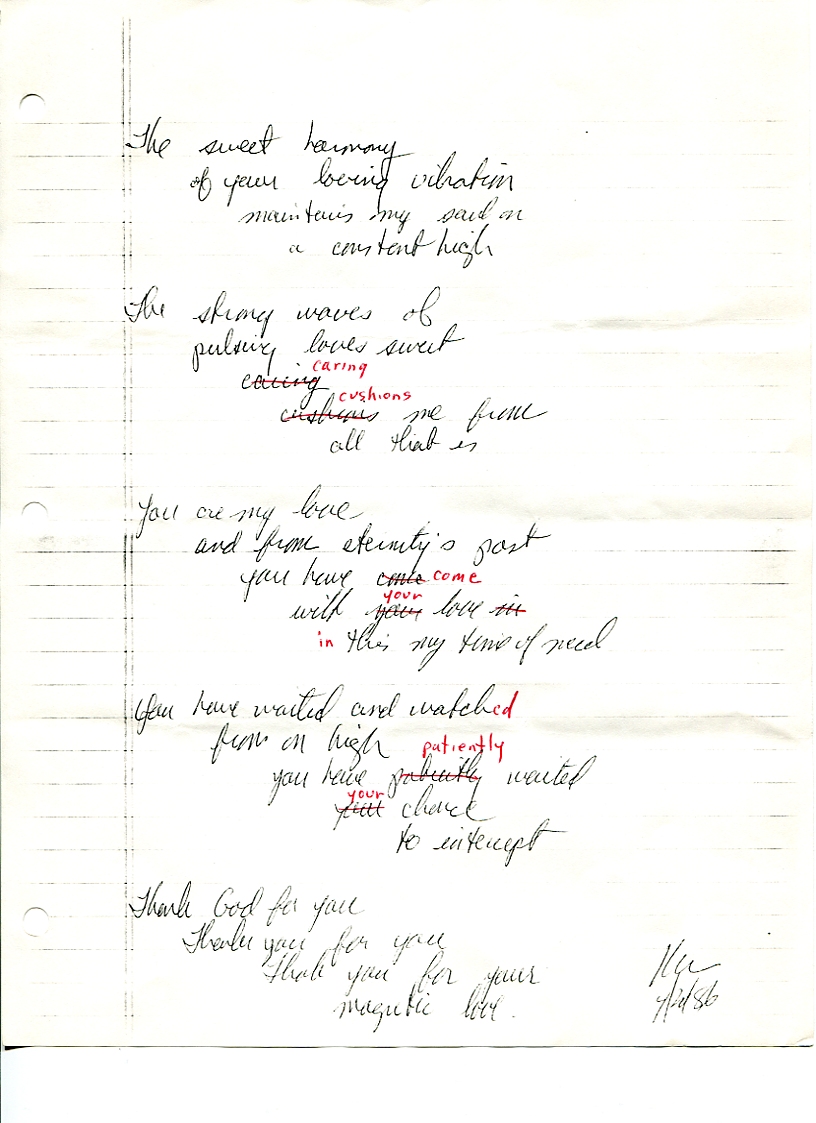 The sweet harmony
of your loving vibration
maintains my soul on
a constant high
The strong waves of
pulsing loves sweet
caring caring
cushions cushions me from
all that is
You are my love
and from eternity's past
you have come come
with your your love in
in this my time of need
You have waited and watched
from on high
you have patiently patiently waited
your your chance
to intercept
Thank God for you
Thank you for you
Thank you for your
magnetic love.